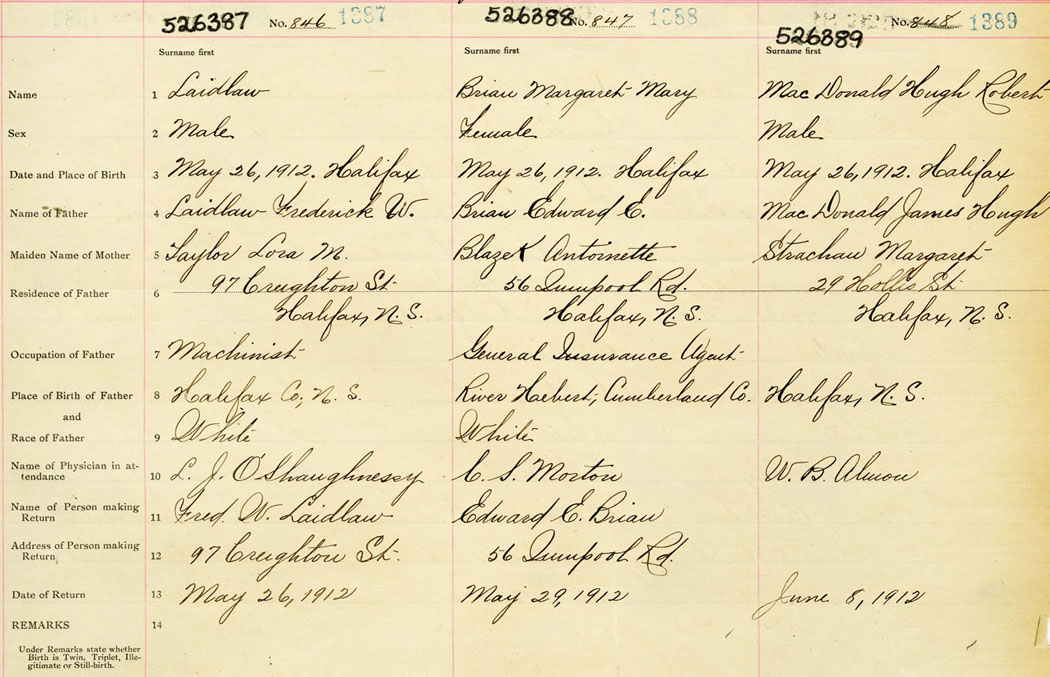 526387 No. 846 1387 526388 No. 847 1388 526389 No. 848 1389
Surname first Surname first Surname first
Name 1 Laidlaw Brian Margaret Mary Mac Donald Hugh Robert
Sex 2 Male Female Male
Date and Place of Birth 3 May 26, 1912. Halifax May 26, 1912. Halifax May 26, 1912. Halifax
Name of Father 4 Laidlaw Frederick W. Brian Edward E. Mac Donald James Hugh
Maiden Name of Mother 5 Taylor Lora M. Blazek Antoinette Strachan Margaret
Residence of Father 6 97 Creighton St. 56 Quinpool Rd. 29 Hollis St.
Halifax, N. S. Halifax, N. S. Halifax, N. S.
Occupation of Father 7 Machinist General Insurance Agent
Place of Birth of Father 8 Halifax Co, N. S. River Haebert, Cumberland Co. Halifax, N. S.
and
Race of Father 9 White White
Name of Physician in at-
tendance 10 L. J. O'Shaughnessy C. S. Morton W. B. Almon
Name of Person making
Return 11 Fred. W. Laidlaw Edward E. Brian
Address of Person making
Return 12 97 Creighton St. 56 Quinpool Rd.
Date of Return 13 May 26, 1912 May 29, 1912 June 8, 1912
REMARKS 14
Under Remarks state whether
Birth is Twin, Triplet, Ille-
gitimate or Still-birth.